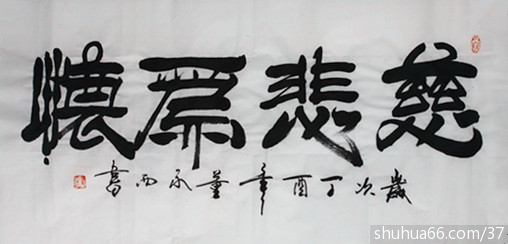 慈悲為懷
歲次丁酉年董承雨書
shuhua66.com/37